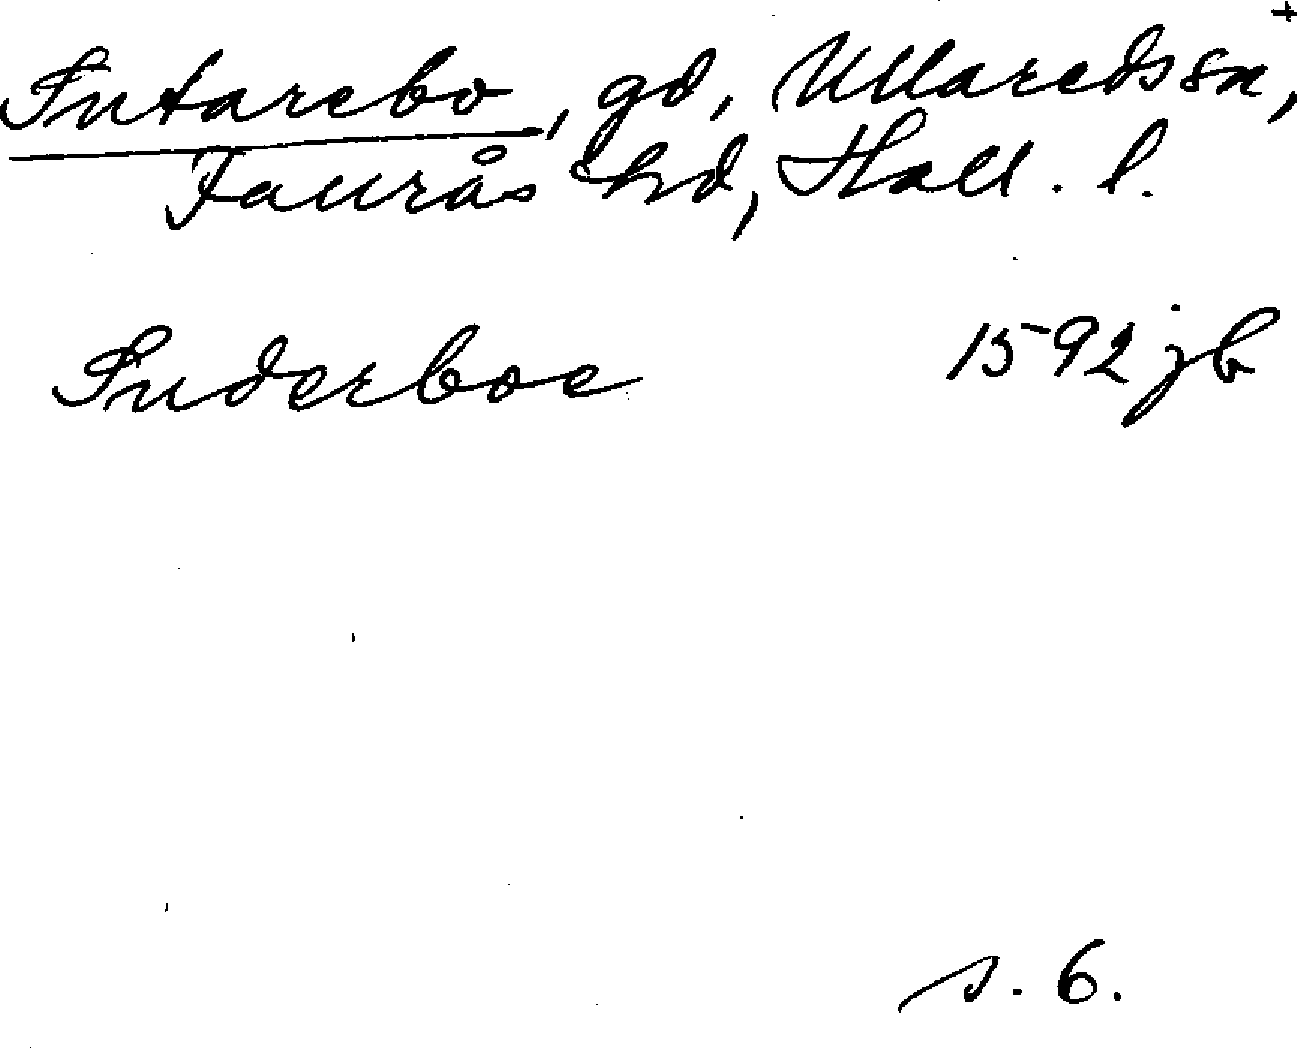 +
Sutarebo, gd, Ullareds sn,
Faurås hd, Hall. l.
Suderboe 1592 jb
s. 6.